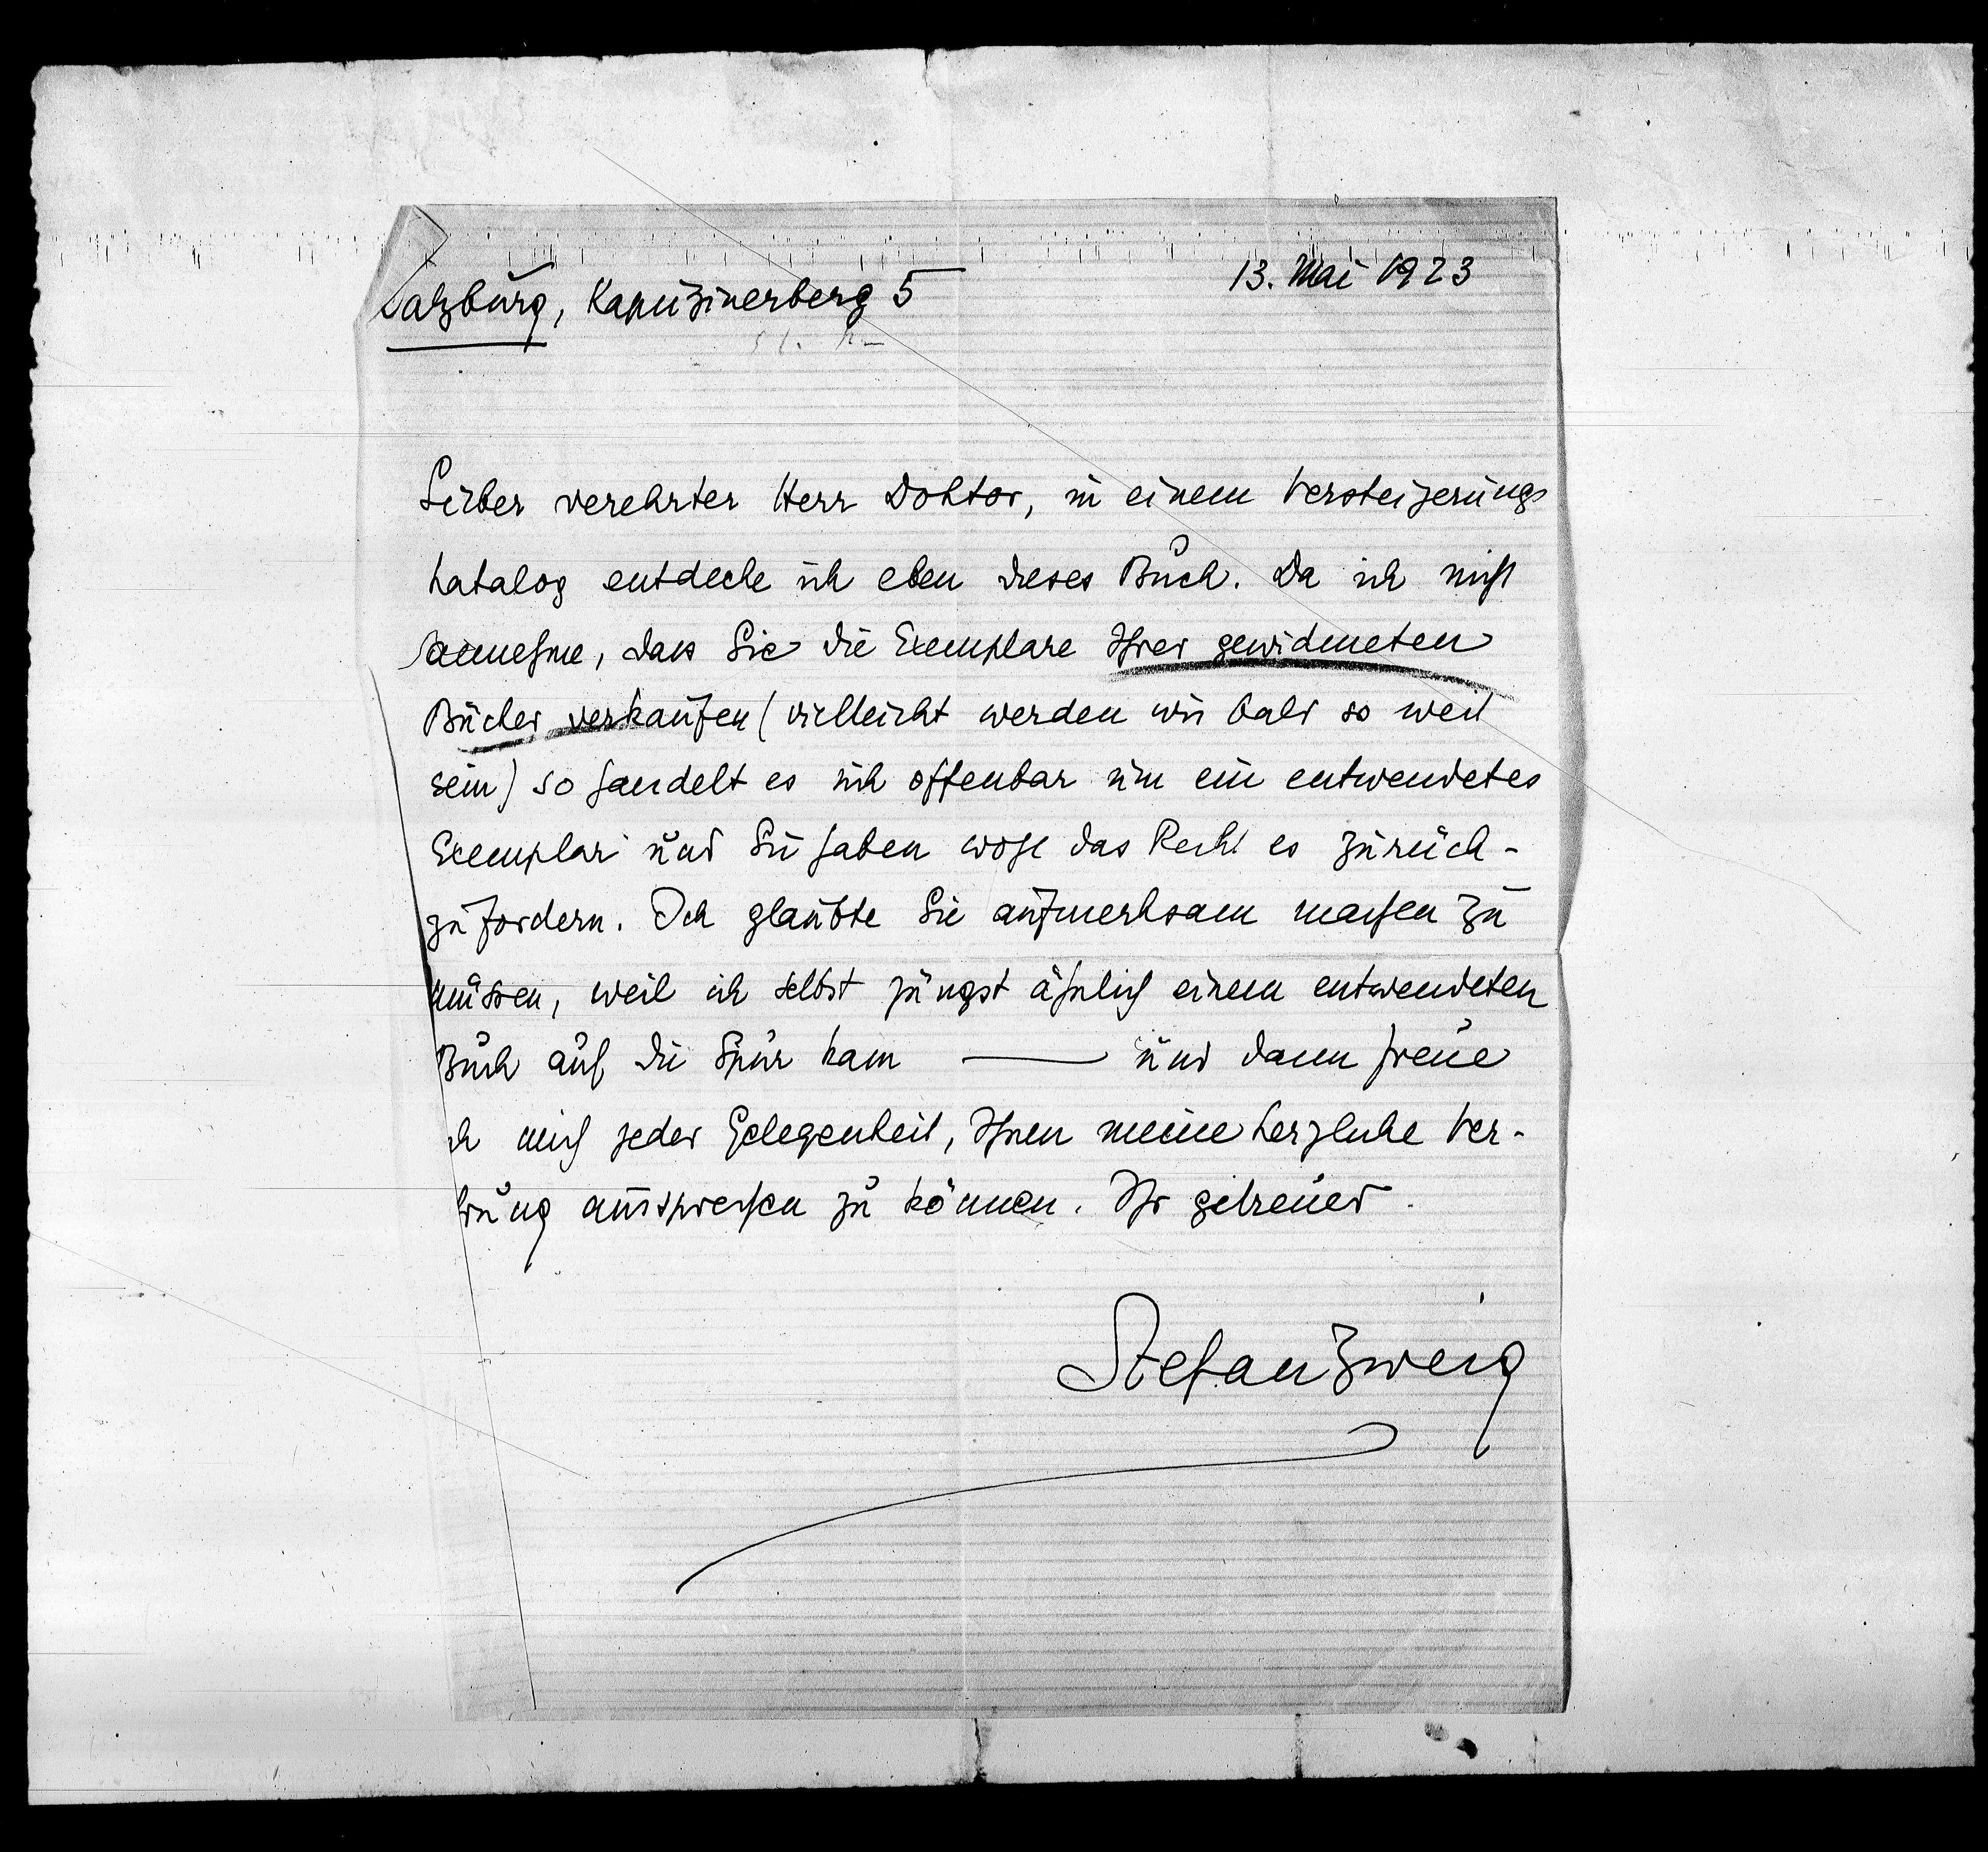 Salzburg, Kapuzinerberg 5
13. Mai 1923
Lieber verehrter Herr Doktor, in einem Versteigerungs
katalog entdecke ich eben dieses Buch. Da ich nicht
annehme, dass Sie die Exemplare Ihrer gewidmeten
Bücher verkaufen (vielleicht werden wir bald so weit
sein) so handelt es sich offenbar um ein entwendetes
Exemplar und Sie haben wohl das Recht es zurück-
zufordern. Ich glaubte Sie aufmerksam machen zu
müssen, weil ich selbst jüngst ähnlich einem entwendeten
Buch auf die Spur kam — und dann freue
ich mich jeder Gelegenheit, Ihnen meine herzliche Ver-
ehrung aussprechen zu können. Ihr getreuer
Stefan Zweig